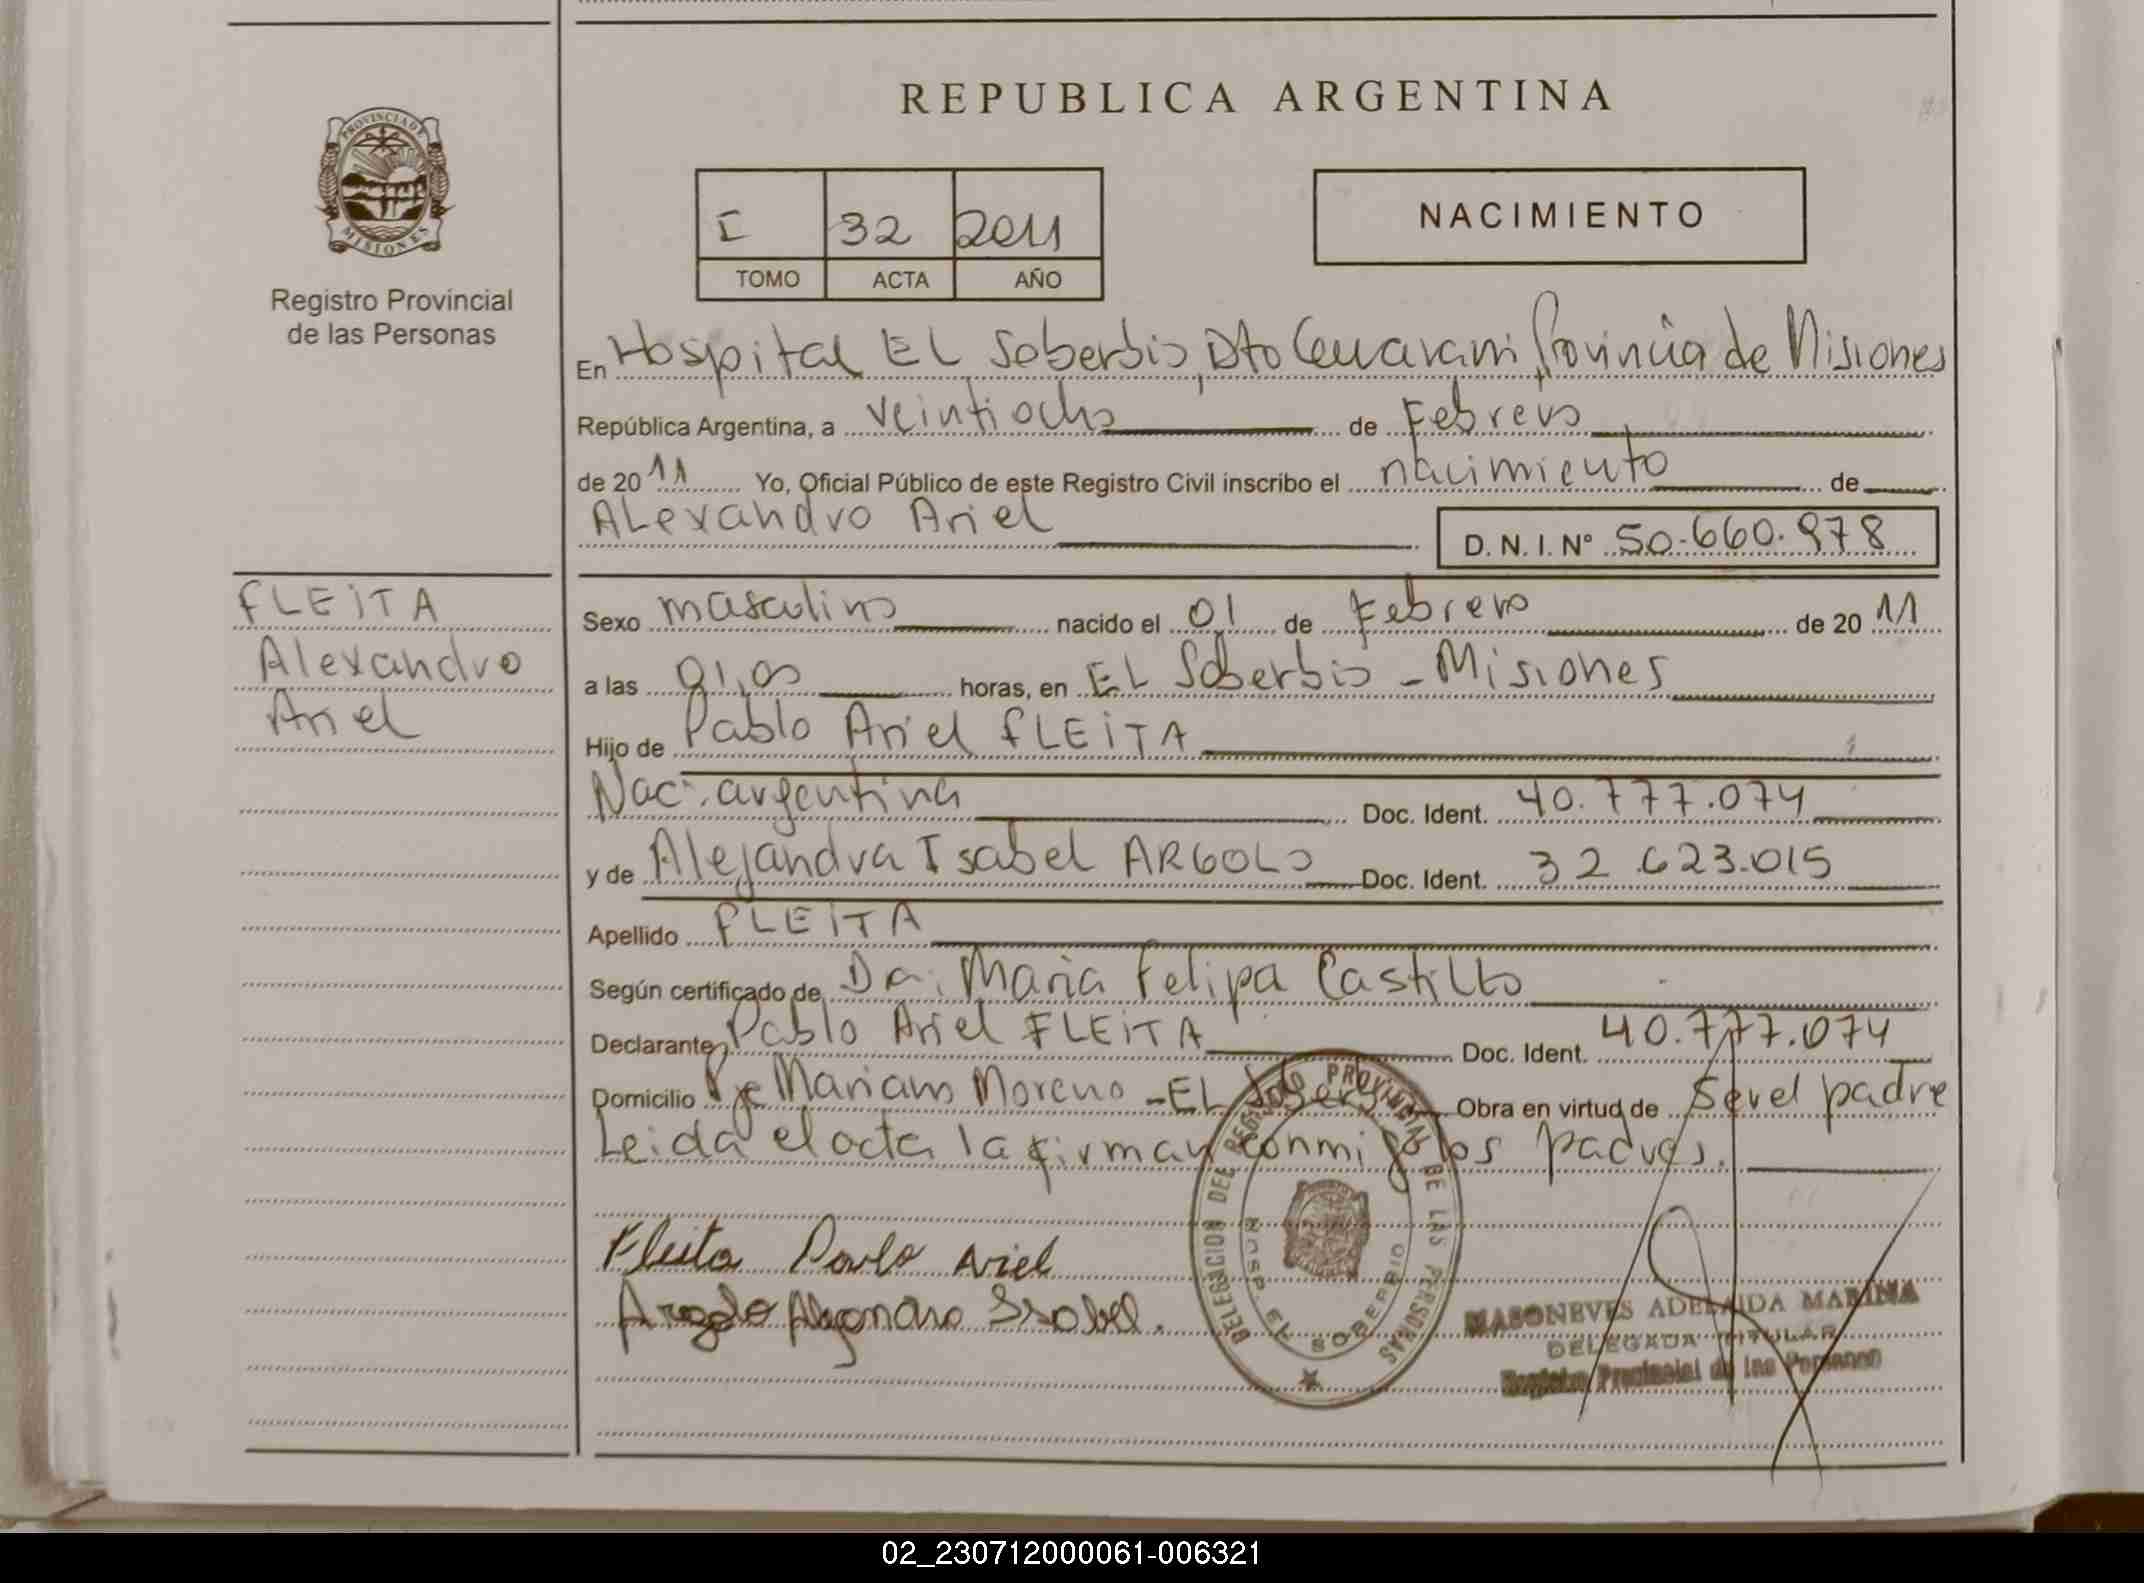 REPUBLICA ARGENTINA
PROVINCIA DE
MISIONES
Registro Provincial
de las Personas
I 32 2011
TOMO ACTA AÑO
NACIMIENTO
En Hospital EL Soberbio, Dto Guarani, Provincia de Misiones
República Argentina, a veintiocho de Febrero
de 2011 Yo, Oficial Público de este Registro Civil inscribo el nacimiento de
Alexandro Ariel
D. N. I. Nº 50.660.978
FLEITA
Alexandro
Ariel
Sexo masculino nacido el 01 de Febrero de 2011
a las 01,00 horas, en EL Soberbio - Misiones
Hijo de Pablo Ariel FLEITA
Nac. argentina Doc. Ident. 40.777.074
y de Alejandra Isabel ARGOLO Doc. Ident. 32.623.015
Apellido FLEITA
Según certificado de Dra. Maria Felipa Castillo
Declarante Pablo Ariel FLEITA Doc. Ident. 40.777.074
Domicilio Pje Mariano Moreno - EL Soberbio Obra en virtud de Ser el padre
Leida el acta la firman conmigo los padres.
Fleita Pavlo Ariel
Argolo Alejandra Isabel.
DELEGACION DEL REGISTRO PROVINCIAL DE LAS PERSONAS
HOSP. EL SOBERBIO
MASONEVES ADELAIDA MARINA
DELEGADA TITULAR
Registro Provincial de las Personas
02_230712000061-006321